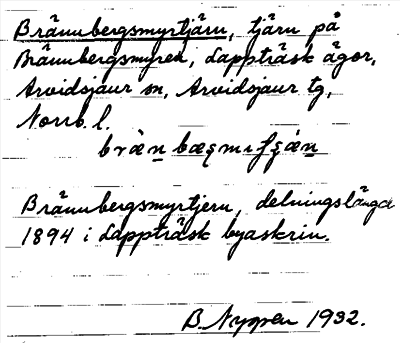 Brännbergsmyrtjärn, tjärn på
Brännbergsmyren, Lappträsk ägor,
Arvidsjaur sn, Arvidsjaur tg,
Norrb. l.
Brännbergsmyrtjern, delningslängd
1894 i Lappträsk byaskrin.
B. Nyppen 1932.